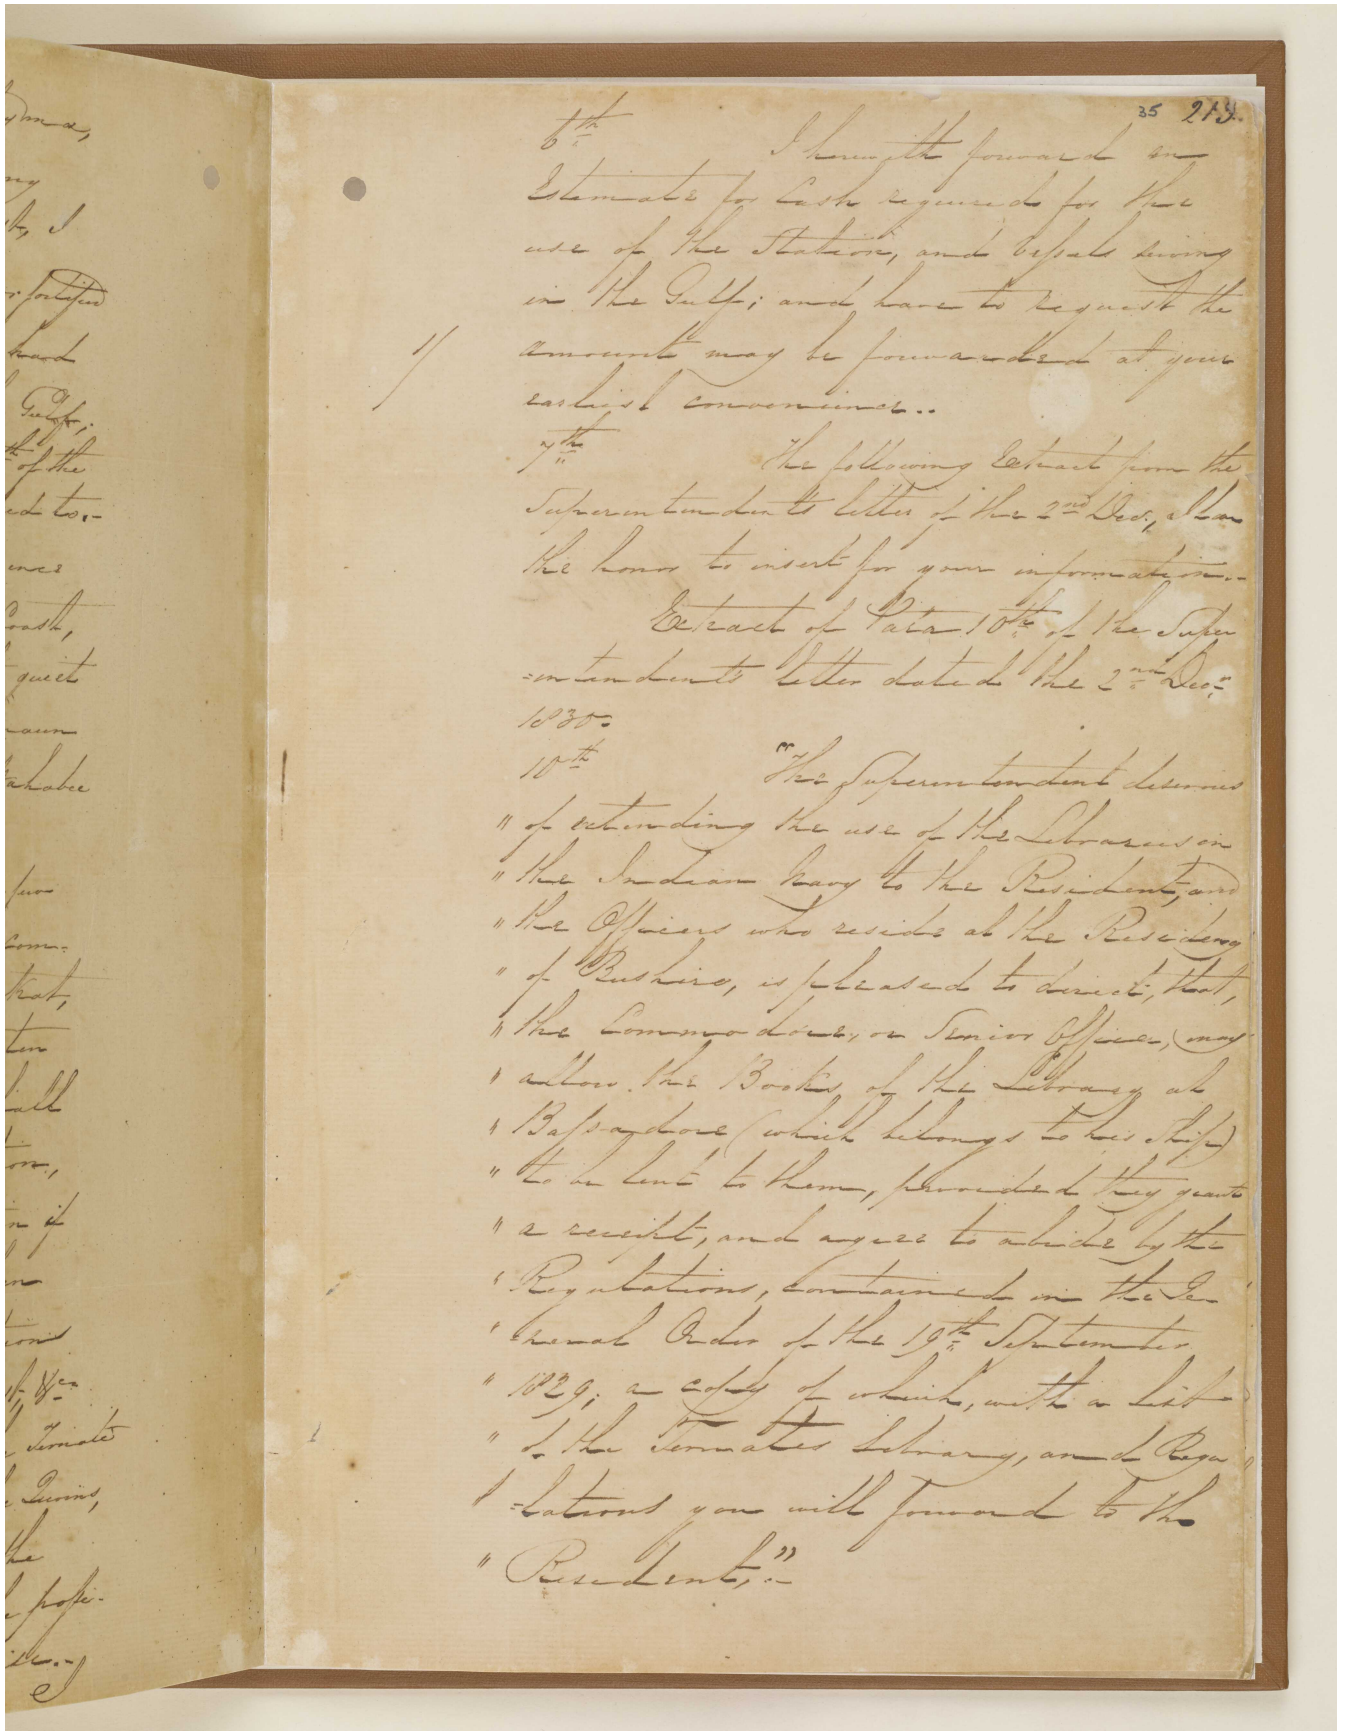 ymа,
ng
st, I
or fortified
hard
Gulf;
th of the
ed to.-
ence
Coast,
quiet
raun
ahabee
few
com=
that,
ten
all
on,
n if
en
tions
st, &ca
Ternate
Quoins,
the
posse-
ise.-
35 219.
6th I herewith forward an
Estimate for Cash required for the
use of the Station, and Vessels serving
in the Gulf; and have to request the
1/ amount may be forwarded at your
earliest convenience..
7th The following Extract from the
Superintendent's letter of the 2nd Dec., I have
the honor to insert for your information.-
Extract of Para 10th of the Super
=intendent's letter dated the 2nd Decr.
1830.
10th "The Superintendent desirous
" of extending the use of the Libraries in
" the Indian Navy to the Resident, and
" the Officers who reside at the Residency
" of Bushire, is pleased to direct, that,
" the Commodore, or Senior Officer, may
" allow the Books of the Library at
" Bassadore (which belongs to his Ship)
" to be lent to them, provided they grant
" a receipt, and agree to abide by the
" Regulations, contained in the Ge-
" =neral Order of the 19th September
" 1829; a copy of which, with a list
" of the Ternates Library, and Regu "
" =lations you will forward to the
" Resident,"-